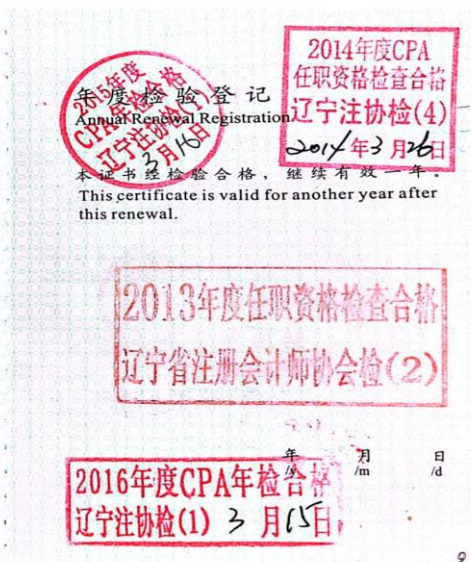 2015年度
CPA年检合格
辽宁注协检(1)
3月16日
2014年度CPA
任职资格检查合格
辽宁注协检(4)
2014年3月26日
年度检验登记
Annual Renewal Registration
本证书经检验合格，继续有效一年。
This certificate is valid for another year after
this renewal.
2013年度任职资格检查合格
辽宁省注册会计师协会检(2)
年 月 日
/y /m /d
2016年度CPA年检合格
辽宁注协检(1) 3月15日
9